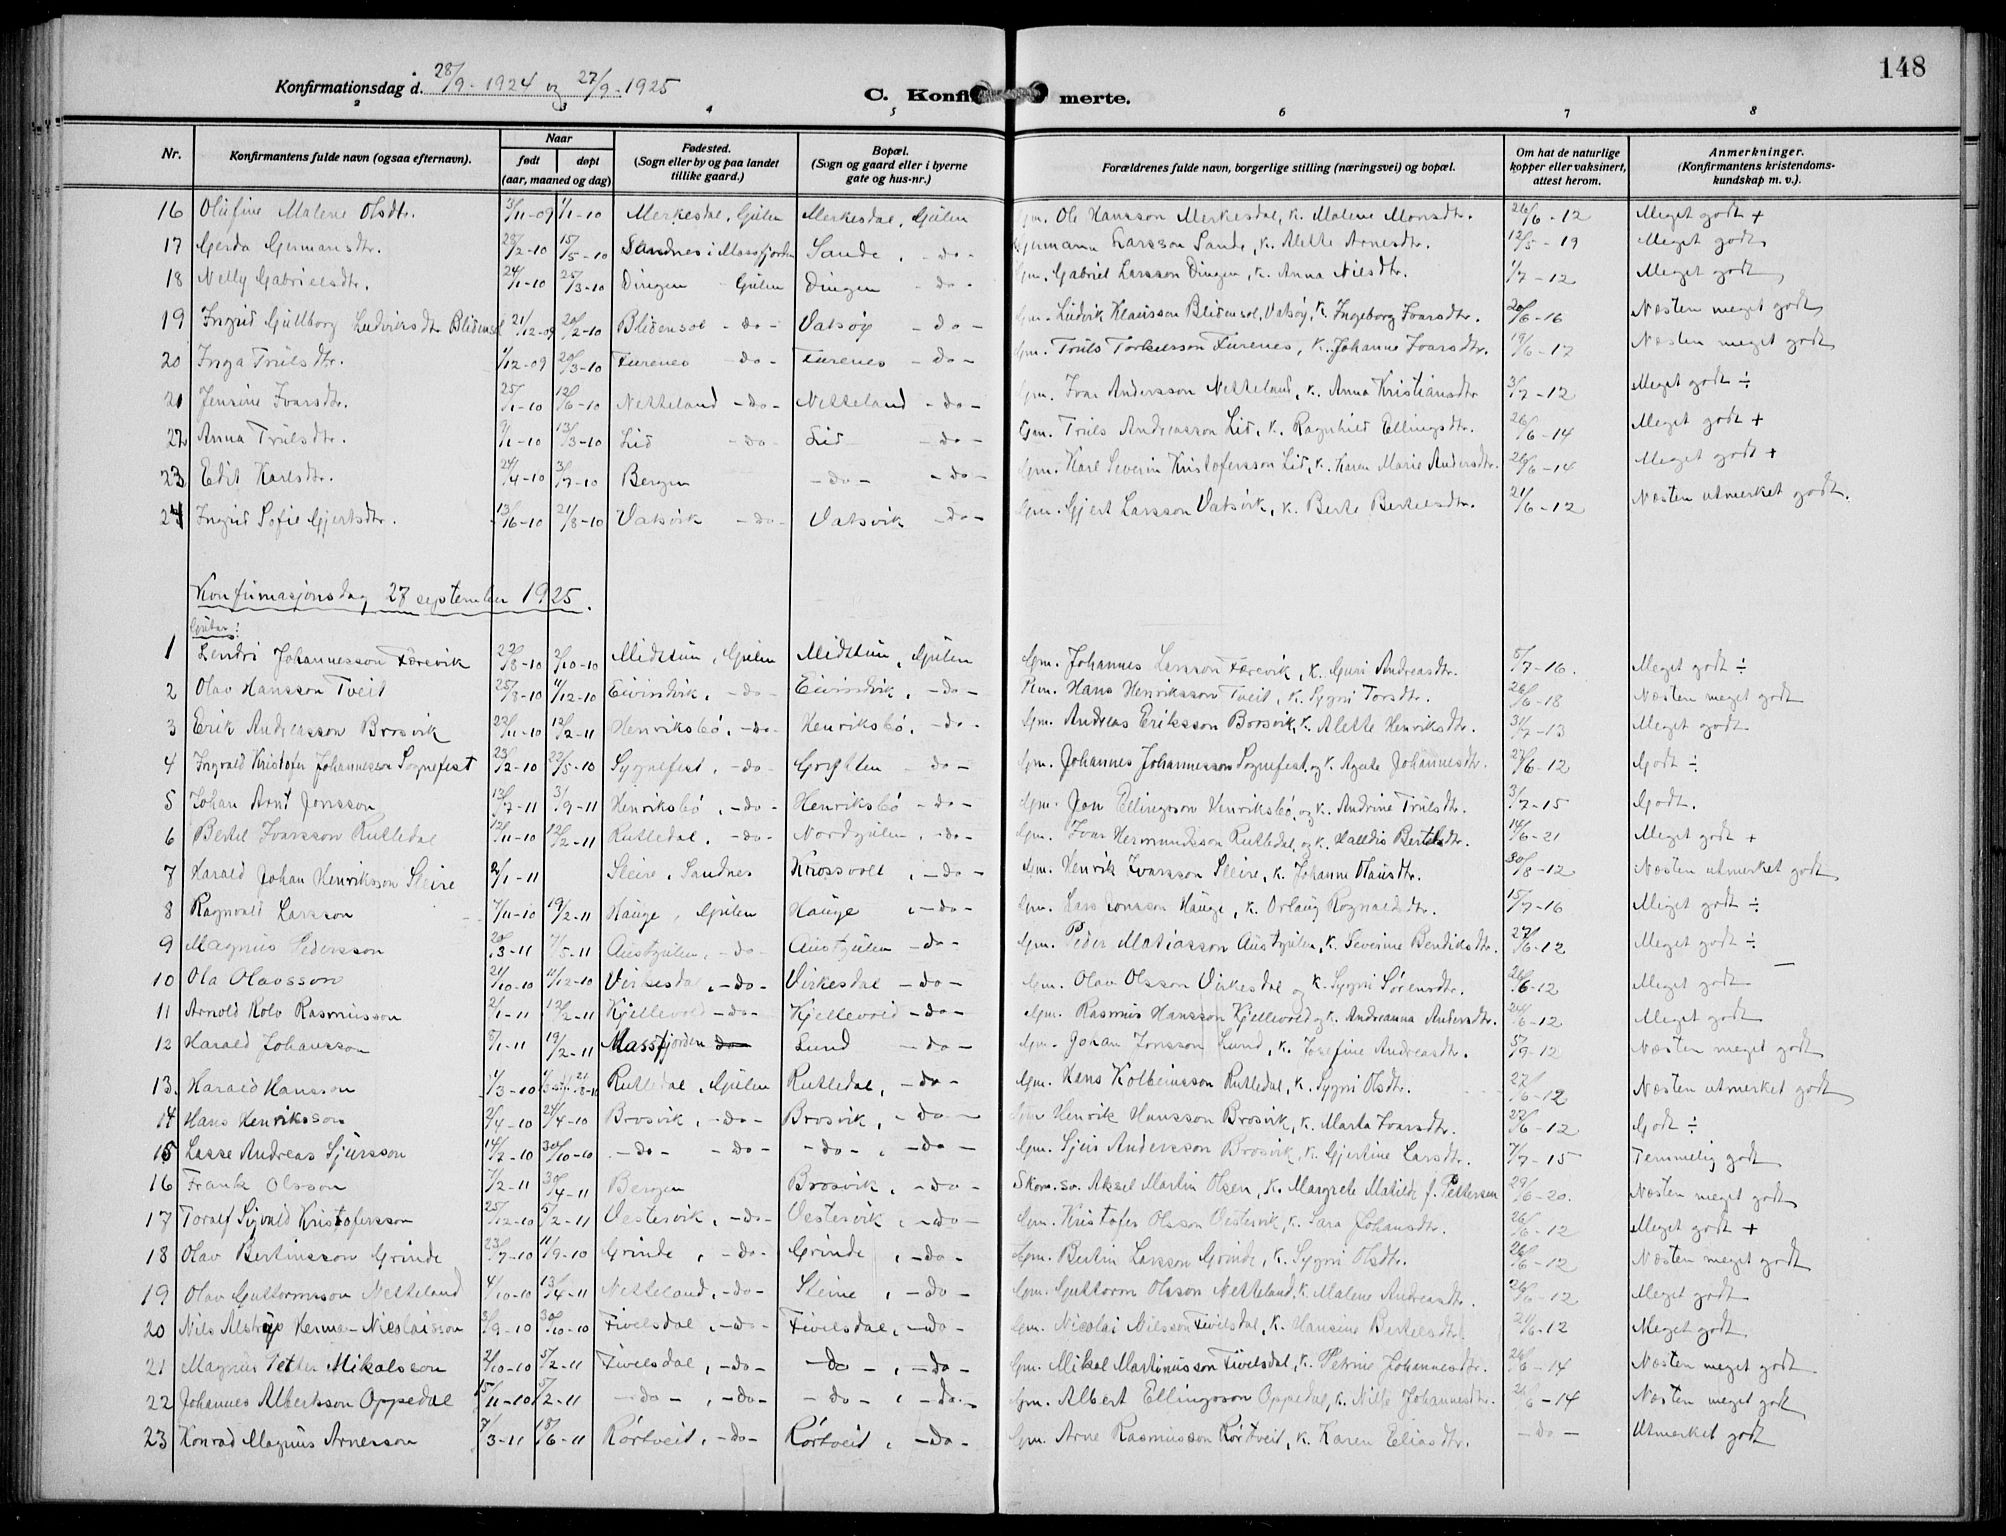 148
Konfirmationsdag d. 28/9 - 1924 og 27/9 - 1925
C. Konfirmerte.
2 3 4 5 6 7 8
Nr. Konfirmantens fulde navn (ogsaa efternavn). Naar født døpt (aar, maaned og dag) Fødested. (Sogn eller by og paa landet tillike gaard.) Bopæl. (Sogn og gaard eller i byerne gate og hus-nr.) Forældrenes fulde navn, borgerlige stilling (næringsvei) og bopæl. Om hat de naturlige kopper eller vaksinert, attest herom. Anmerkninger. (Konfirmantens kristendoms-kundskap m. v.).
16 Olufine Malene Olsdtr. 3/11-09 1/1-10 Merkesdal, Gulen Merkesdal, Gulen Gm. Ole Hansson Merkesdal, k. Malene Monsdtr. 26/6-12 Meget godt +
17 Gerda Germansdtr. 28/2-10 15/5-10 Sandnes i Massfjorden Sande, -do- Germann Larsson Sande, k. Alette Arnesdtr. 12/5-19 Meget godt
18 Nelly Gabrielsdtr. 24/1-10 25/3-10 Dingen - Gulen Dingen -do- Gm. Gabriel Larsson Dingen, k. Anna Nilsdtr. 1/7-12 Meget godt
19 Ingrid Gullborg Ludviksdtr Blidensol 21/12-09 20/2-10 Blidensol -do- Vatsøy -do- Gm. Ludvik Klausson Blidensol, Vatsøy, k. Ingeborg Ivarsdtr. 20/6-16 Næsten meget godt
20 Inga Trulsdtr. 1/12-09 20/3-10 Furenes -do- Furenes -do- Gm. Truls Torkelsson Furenes, k. Johanne Ivarsdtr. 19/6-17 Næsten meget godt
21 Jensine Ivarsdtr. 25/1-10 12/6-10 Netteland -do- Netteland -do- Gm. Ivar Andersson Netteland, k. Anna Kristiansdtr 3/7-12 Meget godt ÷
22 Anna Trulsdtr. 9/1-10 13/3-10 Lid -do- Lid -do- Gm. Truls Andreasson Lid, k. Ragnhild Ellingsdtr. 26/6-14 Meget godt +
23 Edit Karlsdtr. 24/4-10 3/7-10 Bergen -do- -do- Gm. Karl Severin Kristofersson Lid, k. Karen Marie Andersdtr. 26/6-14 Meget godt +
24 Ingrid Sofie Gjertsdtr. 13/6-10 21/8-10 Vatsvik -do- Vatsvik -do- Gm. Gjert Larsson Vatsvik, k. Berte Bertelsdtr. 21/6-12 Næsten utmerket godt.
Konfirmasjonsdag 27 september 1925.
Gutar:
1 Sendri Johannesson Færevik 22/8-10 2/10-10 Midttun, Gulen Midttun, Gulen Gm. Johannes Larsson Færevik, k. Guri Andreasdtr. 5/7-16. Meget godt ÷
2 Olav Hansson Tveit 25/8-10 11/12-10 Eivindvik, -do- Eivindvik, -do- Hans Henriksson Tveit, k. Sygni Torsdtr. 26/6-18 Næsten meget godt
3 Erik Andreasson Brosvik 22/11-10 12/2-11 Henriksbö, -do- Henriksbö, -do- Gm. Andreas Eriksson Brosvik, k. Alette Henriksdtr. 31/7-13 Meget godt
4 Ingvald Kristofer Johannesson Sognefest 23/2-10 22/5-10 Sygnefest, -do- -do- Gm. Johannes Johannesson Sognefest, og k. Agate Johannesdtr. 27/6-12 Godt ÷
5 Johan Arnt Jonsson 13/7-11 3/9-11 Henriksbö, -do- Henriksbö -do- Gm. Jon Ellingsson Henriksbö, og k. Andrine Trulsdtr. 3/7-15 Godt.
6 Bertel Ivarsson Rutledal 12/11-10 12/2-11 Rutledal, -do- Nordgulen, -do- Gm. Ivar Hermundsson Rutledal, og k. Halldis Bertelsdtr. 14/6-21 Meget godt +
7 Harald Johan Henriksson Sleire 2/1-11 Sleire, Sandnes Krossvoll, -do- Gm. Henrik Ivarsson Sleire, k. Johanne Olausdtr. 30/8-12 Næsten utmerket godt
8 Ragnvald Larsson 7/11-10 19/2-11 Hauge, Gulen Hauge, -do- Gm. Lars Jonsson Hauge, k. Orlaug Rognaldsdtr. 15/7-16 Meget godt ÷
9 Magnus Pedersson 20/3-11 7/5-11 Austgulen, -do- Austgulen -do- Gm. Peder Matiasson Austgulen, k. Severine Bendiksdtr. 27/6-12 Meget godt ÷
10 Ola Olavsson 21/10-10 11/12-10 Virkesdal, -do- Virkesdal -do- Gm. Olav Olsson Virkesdal og k. Sygni Sørensdtr. 26/6-12 Meget godt
11 Arnold Kolv Rasmusson 2/1-11 12/2-11 Kjellevold -do- Kjellevold -do- Gm. Rasmus Hansson Kjellevold og k. Andreanna Andersdtr. 24/6-12 Meget godt
12 Harald Johansson 8/1-11 19/2-11 Massfjorden do Lund -do- Gm. Johan Jonsson Lund, k. Josefine Andreasdtr. 5/9-12 Næsten meget godt
13. Harald Hansson 1/3-10 Rutledal, Gulen Rutledal, -do- Gm. Hans Kolbeinsson Rutledal, k. Sygni Olsdtr. 27/6-12 Næsten utmerket godt
14 Hans Henriksson 2/4-10 24/4-10 Brosvik, -do- Brosvik, -do- Gm. Henrik Hansson Brosvik, k. Marta Ivarsdtr. 22/6-12 Godt ÷
15 Lasse Andreas Sjursson 14/7-10 30/10-10 -do- -do- -do-, -do- Gm. Sjur Andersson Brosvik, k. Gjertine Larsdtr. 7/7-15 Temmelig godt
16 Frank Olsson 7/2-11 30/4-11 Bergen Brosvik, -do- Skom.sv. Aksel Martin Olsen, k. Margrete Matilde f. Pettersen 29/6-20. Næsten meget godt
17 Toralf Sigvald Kristofersson 25/12-10 5/2-11 Vestervik, -do- Vestervik, -do- Gm. Kristofer Olsson Vestervik, k. Sara Johansdtr. 26/6-12 Meget godt +
18 Olav Bertinsson Grinde 23/7-10 11/9-10 Grinde, -do- Grinde, -do- Gm. Bertin Larsson Grinde, k. Sygni Olsdtr. 26/6-12 Næsten meget godt
19 Olav Guttormsson Netteland 4/10-10 13/4-11 Netteland, -do- Steine, -do- Gm. Guttorm Olsson Netteland, k. Malene Andreasdtr. 26/6-12 Meget godt
20 Nils Alstrup Herma-Nicolaisson 3/9-10 30/10-10 Fivelsdal, -do- Fivelsdal, -do- Gm. Nicolai Nilsson Fivelsdal, k. Hansine Bertelsdtr. 21/6-12 Meget godt
21 Magnus Petter Mikalsson 2/10-10 5/2-11 Fivelsdal, -do- -do-, -do- Gm. Mikal Martinusson Fivelsdal, k. Petrine Johannesdtr. 26/6-14 Næsten meget godt
22 Johannes Albertsson Oppedal 15/11-10 5/2-11 -do-, -do- -do-, -do- Gm. Albert Ellingsson Oppedal, k. Nille Johannesdtr. 26/6-14 Næsten meget godt
23 Konrad Magnus Arnesson 7/3-11 18/6-11 Rörtveit, -do- Rörtveit, -do- Gm. Arne Rasmusson Rörtveit, k. Karen Eliasdtr. -do- Utmerket godt